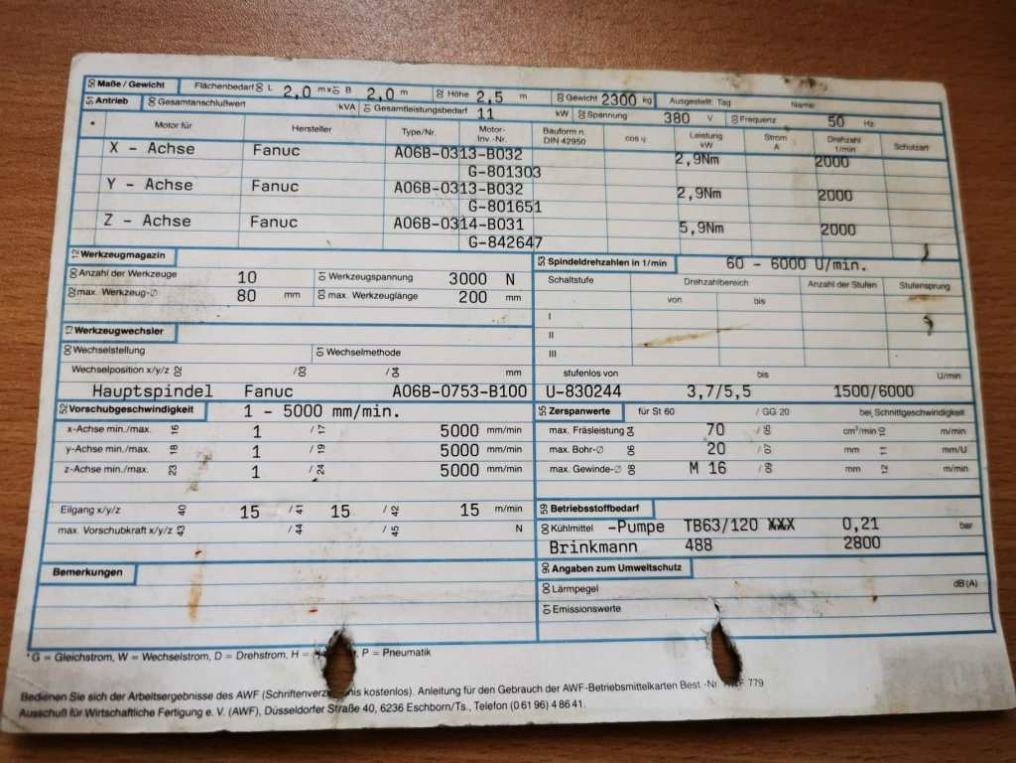 Maße / Gewicht Flächenbedarf L 2,0 m x B 2,0 m Höhe 2,5 m Gewicht 2300 kg Ausgestellt: Tag Name
Antrieb Gesamtanschlußwert kVA Gesamtleistungsbedarf 11 kW Spannung 380 V Frequenz 50 Hz
* Motor für Hersteller Type/Nr. Motor-Inv.-Nr. Bauform n. DIN 42950 cos φ Leistung kW Strom A Drehzahl 1/min Schutzart
X - Achse Fanuc A06B-0313-B032 2,9Nm 2000
G-801303
Y - Achse Fanuc A06B-0313-B032 2,9Nm 2000
G-801651
Z - Achse Fanuc A06B-0314-B031 5,9Nm 2000
G-842647
Werkzeugmagazin
Anzahl der Werkzeuge 10 Werkzeugspannung 3000 N
max. Werkzeug-∅ 80 mm max. Werkzeuglänge 200 mm
Spindeldrehzahlen in 1/min 60 - 6000 U/min.
Schaltstufe Drehzahlbereich Anzahl der Stufen Stufensprung
von bis
I
II
III
Werkzeugwechsler
Wechselstellung Wechselmethode
Wechselposition x/y/z mm
stufenlos von bis U/min
Hauptspindel Fanuc A06B-0753-B100 U-830244 3,7/5,5 1500/6000
Vorschubgeschwindigkeit 1 - 5000 mm/min.
x-Achse min./max. 16 1 / 17 5000 mm/min
y-Achse min./max. 18 1 / 19 5000 mm/min
z-Achse min./max. 23 1 / 24 5000 mm/min
Eilgang x/y/z 40 15 / 41 15 / 42 15 m/min
max. Vorschubkraft x/y/z 43 / 44 / 45 N
Zerspanwerte für St 60 / GG 20 bei Schnittgeschwindigkeit
max. Fräsleistung 70 cm³/min m/min
max. Bohr-∅ 20 mm mm/U
max. Gewinde-∅ M 16 mm m/min
Betriebsstoffbedarf
Kühlmittel -Pumpe TB63/120 XXX 0,21 bar
Brinkmann 488 2800
Bemerkungen
Angaben zum Umweltschutz
Lärmpegel dB (A)
Emissionswerte
* G = Gleichstrom, W = Wechselstrom, D = Drehstrom, H = P = Pneumatik
Bedienen Sie sich der Arbeitsergebnisse des AWF (Schriftenverzeichnis kostenlos). Anleitung für den Gebrauch der AWF-Betriebsmittelkarten Best.-Nr. AWF 779
Ausschuß für Wirtschaftliche Fertigung e. V. (AWF), Düsseldorfer Straße 40, 6236 Eschborn/Ts., Telefon (0 61 96) 4 86 41.